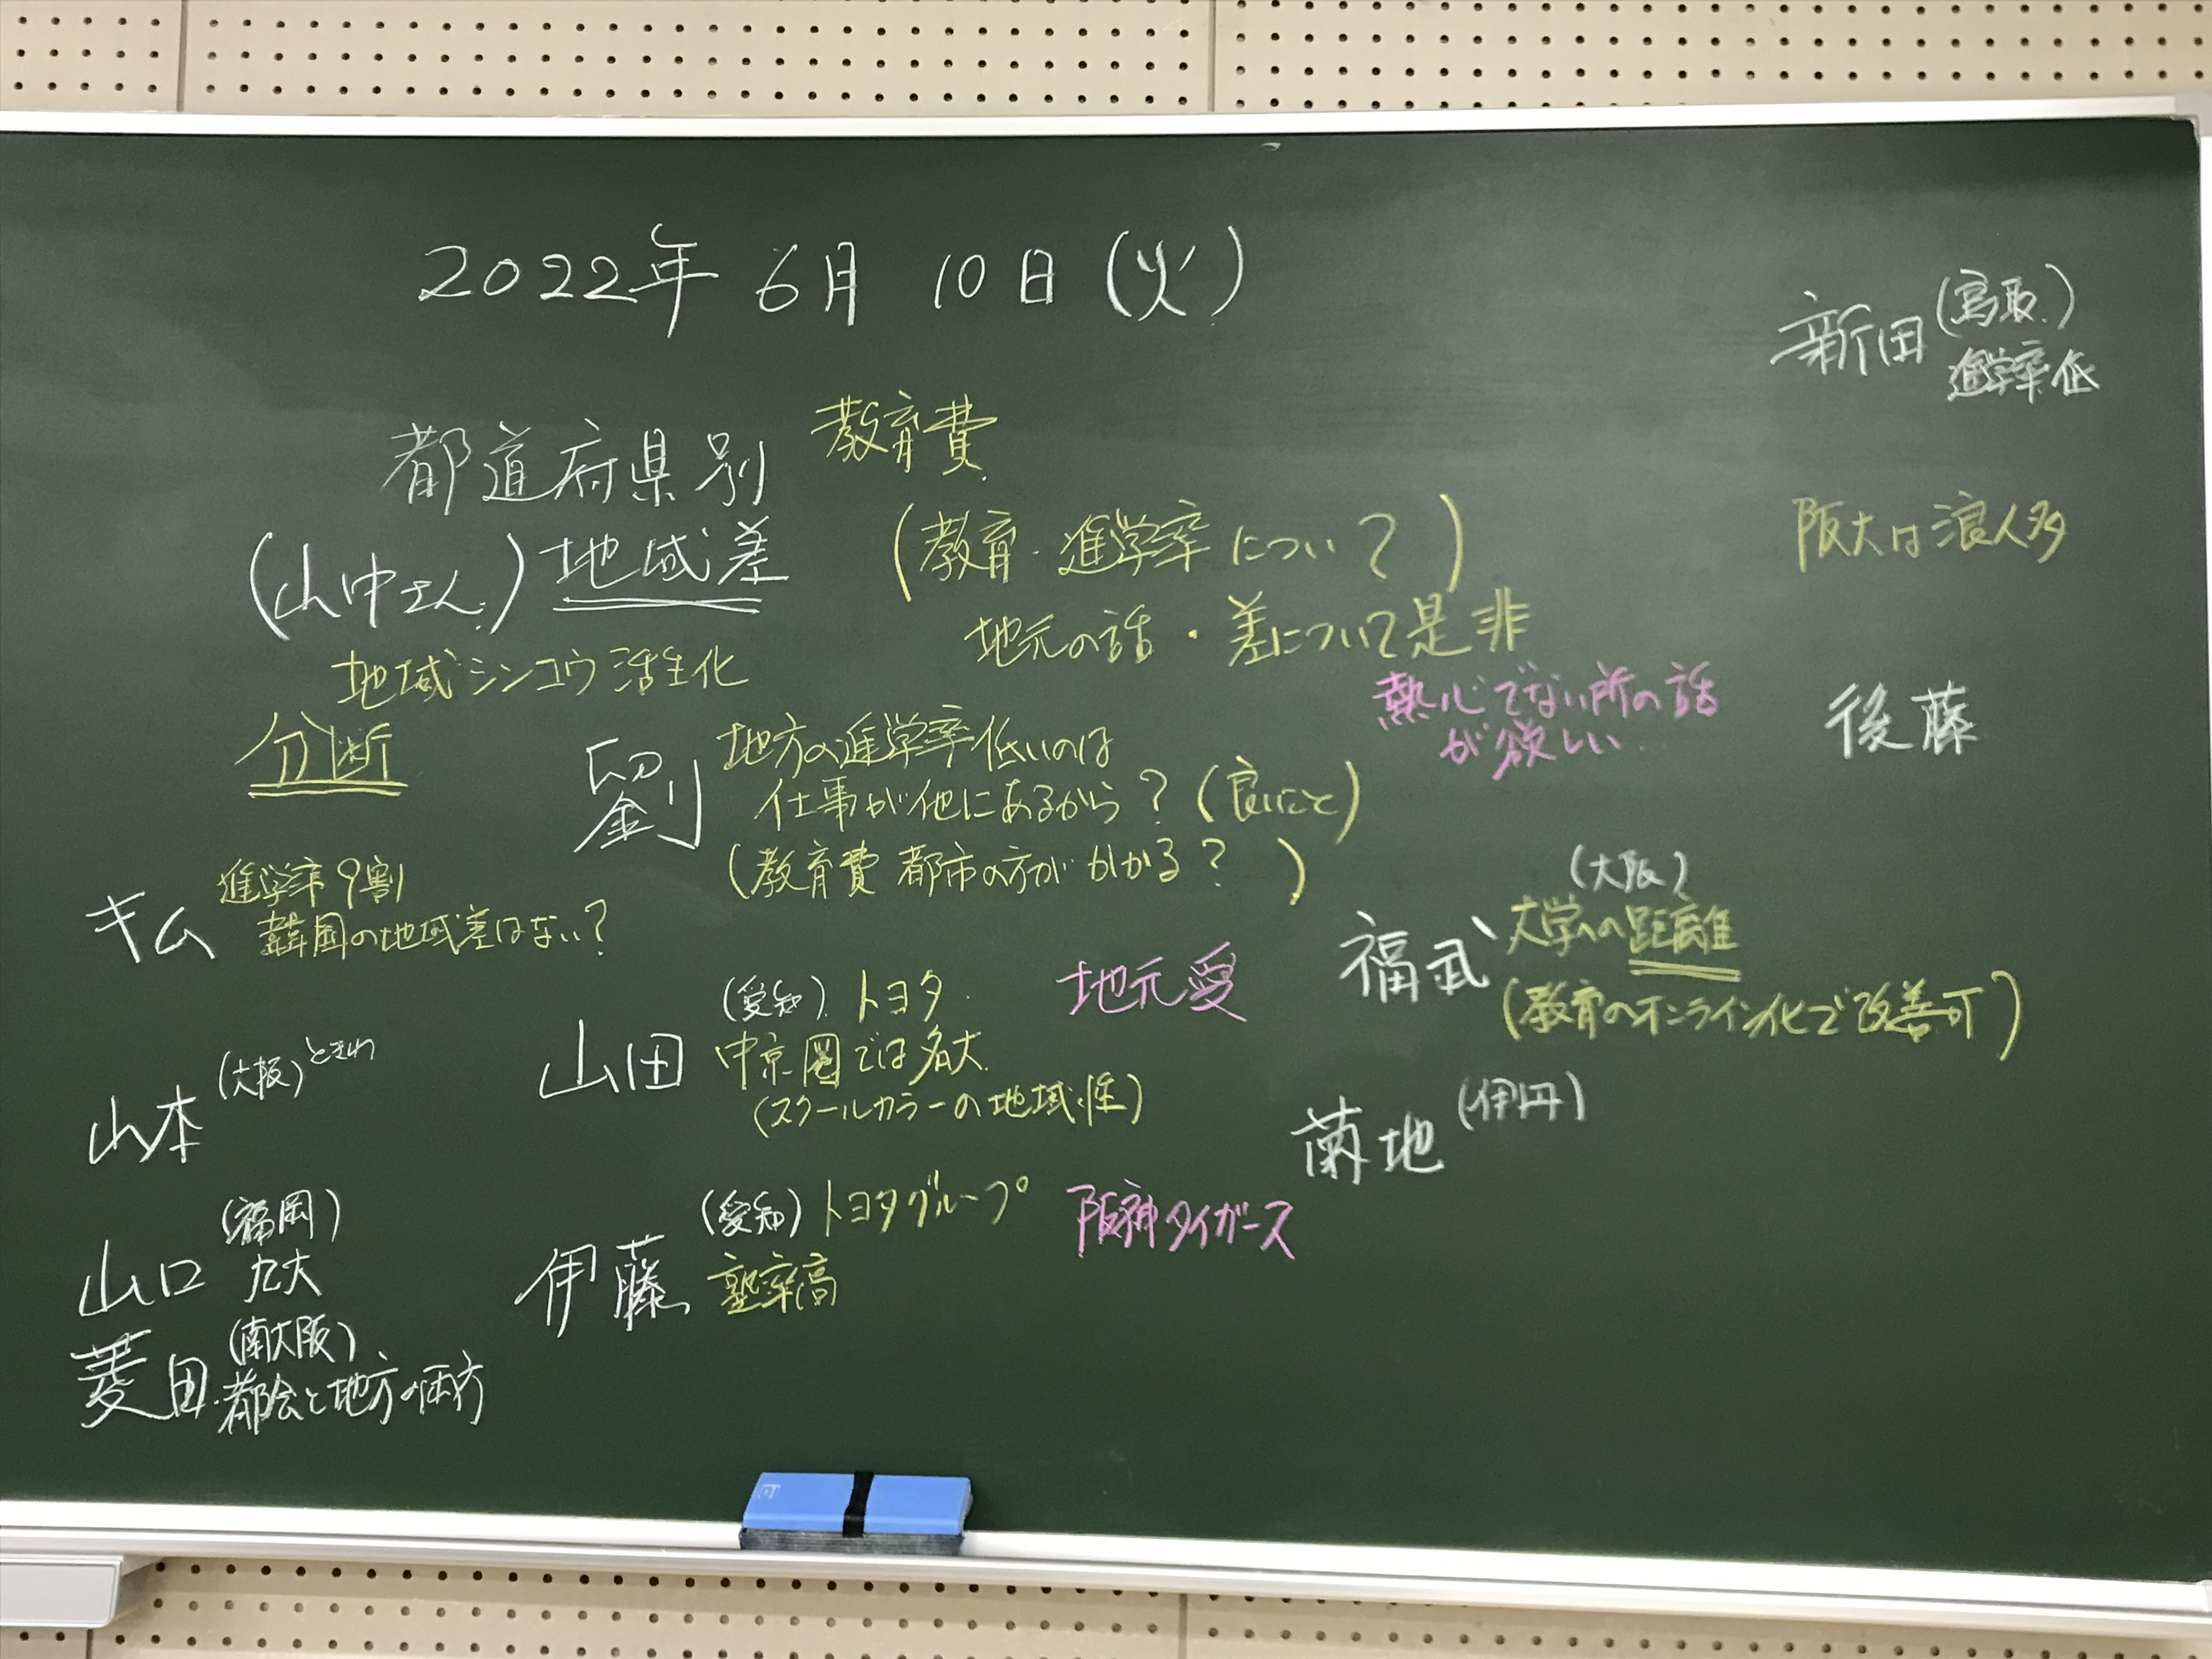 2022年 6月 10日 (火)
新田 (鳥取)
進学率低
都道府県別 教育費
(山中さん) 地域差
(教育・進学率について?)
地元の話・差について是非
阪大は浪人多
地域シンコウ活性化
熱心でない所の話
が欲しい…
後藤
分断
劉 地方の進学率低いのは
仕事が他にあるから? (良いこと)
(教育費 都市の方がかかる? )
キム 進学率9割
韓国の地域差はない?
福武 (大阪)
大学への距離
(教育のオンライン化で改善可)
山田 (愛知) トヨタ
中京圏では名大
(スクールカラーの地域性)
地元愛
山本 (大阪) ときわ
菊地 (伊丹)
山口 (福岡)
九大
伊藤 (愛知) トヨタグループ
塾率高
阪神タイガース
菱田 (南大阪)
都会と地方の両方